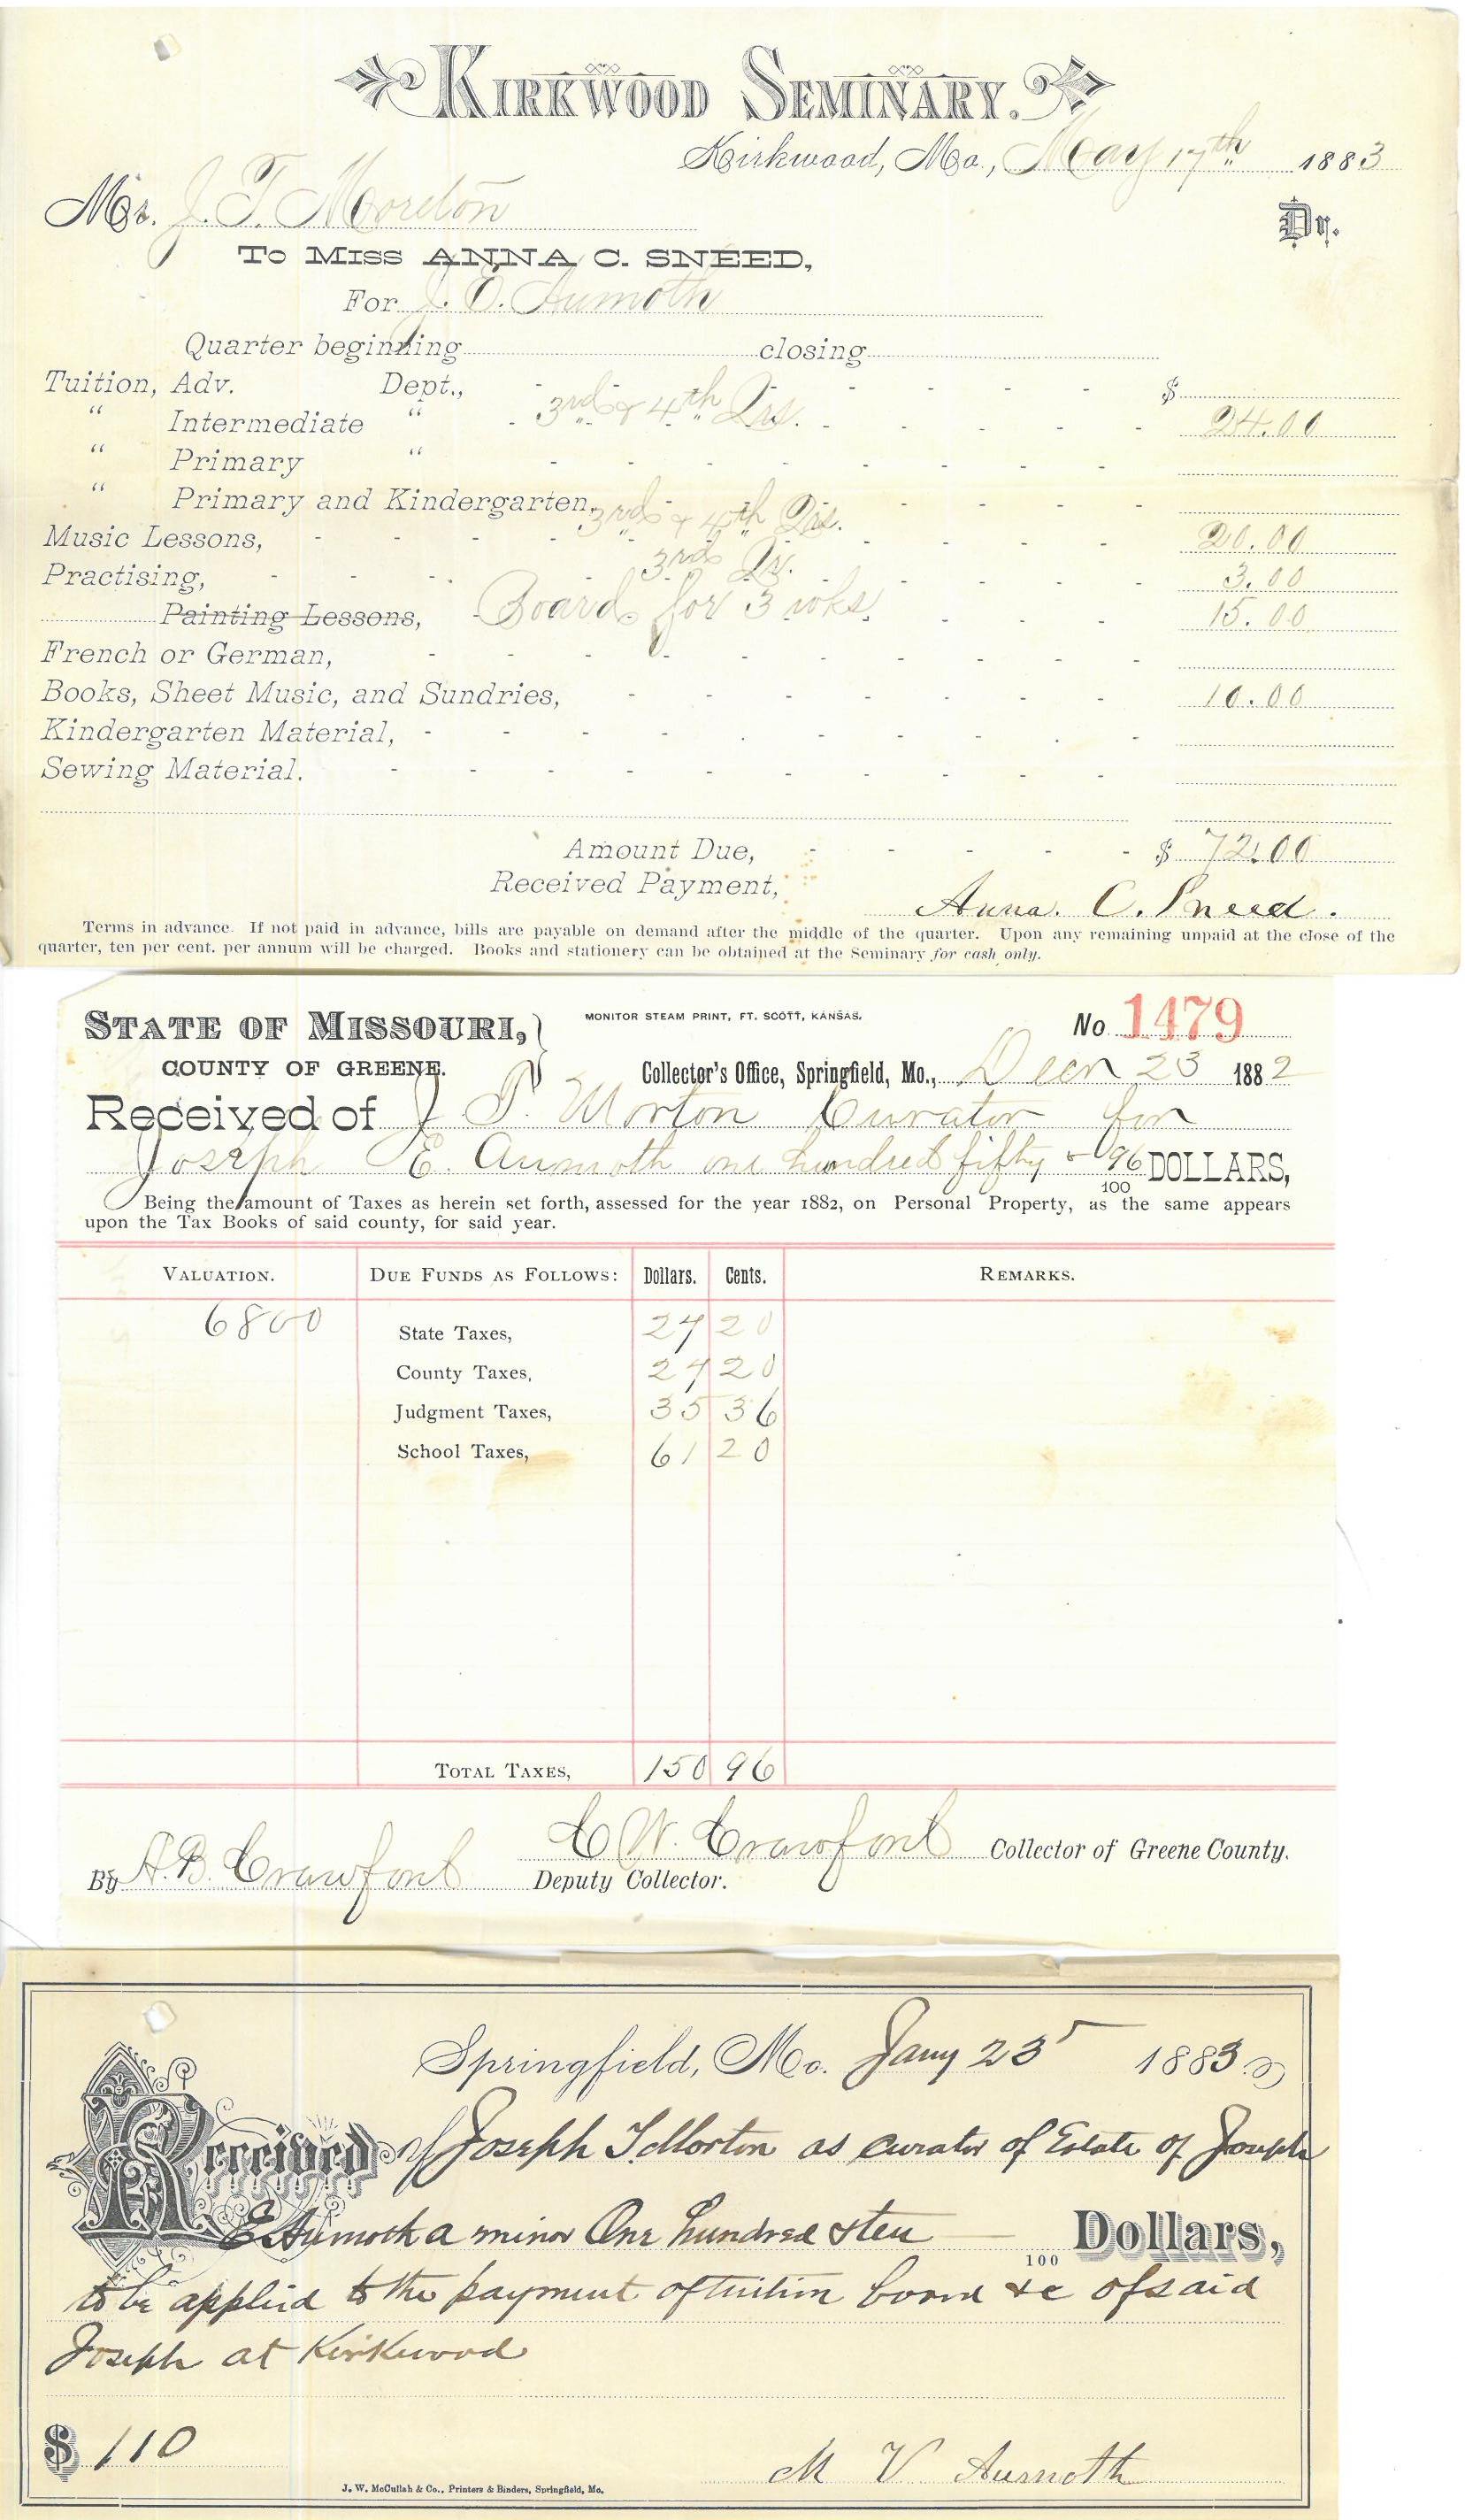 KIRKWOOD SEMINARY.
Kirkwood, Mo., May 17th 1883
Mr. J. T. Moreton
Dr.
TO MISS ANNA C. SNEED,
For J. E. Aumoth
Quarter beginning closing
Tuition, Adv. Dept., - - - - - $
" Intermediate " - 3rd & 4th Qrs. - - - - - 24.00
" Primary " - - - - - - - -
" Primary and Kindergarten, - - - - -
Music Lessons, - - - 3rd & 4th Qrs. - - - - 20.00
Practising, - - - - 3rd Qr. - - - - - 3.00
Painting Lessons, - Board for 3 wks. - - - 15.00
French or German, - - - - - - - - - -
Books, Sheet Music, and Sundries, - - - - - - - 10.00
Kindergarten Material, - - - - - - - - - -
Sewing Material. - - - - - - - - - -
Amount Due, - - - - - $ 72.00
Received Payment,
Anna. C. Sneed.
Terms in advance. If not paid in advance, bills are payable on demand after the middle of the quarter. Upon any remaining unpaid at the close of the
quarter, ten per cent. per annum will be charged. Books and stationery can be obtained at the Seminary for cash only.
STATE OF MISSOURI, } MONITOR STEAM PRINT, FT. SCOTT, KANSAS. No. 1479
COUNTY OF GREENE. Collector's Office, Springfield, Mo., Decr 23 1882
Received of J T. Morton Curator for
Joseph E. Aumoth one hundred fifty & 96/100 DOLLARS,
Being the amount of Taxes as herein set forth, assessed for the year 1882, on Personal Property, as the same appears
upon the Tax Books of said county, for said year.
VALUATION. DUE FUNDS AS FOLLOWS: Dollars. Cents. REMARKS.
6800 State Taxes, 27 20
County Taxes, 27 20
Judgment Taxes, 35 36
School Taxes, 61 20
TOTAL TAXES, 150 96
C W. Crawford Collector of Greene County.
By A. B. Crawford Deputy Collector.
Springfield, Mo. Jany 23 1883
Received of Joseph T. Morton as curator of Estate of Joseph
E Aumoth a minor One hundred & ten 100 Dollars,
to be applied to the payment of tuition board &c of said
Joseph at Kirkwood
$ 110
M V Aumoth
J. W. McCullah & Co., Printers & Binders, Springfield, Mo.